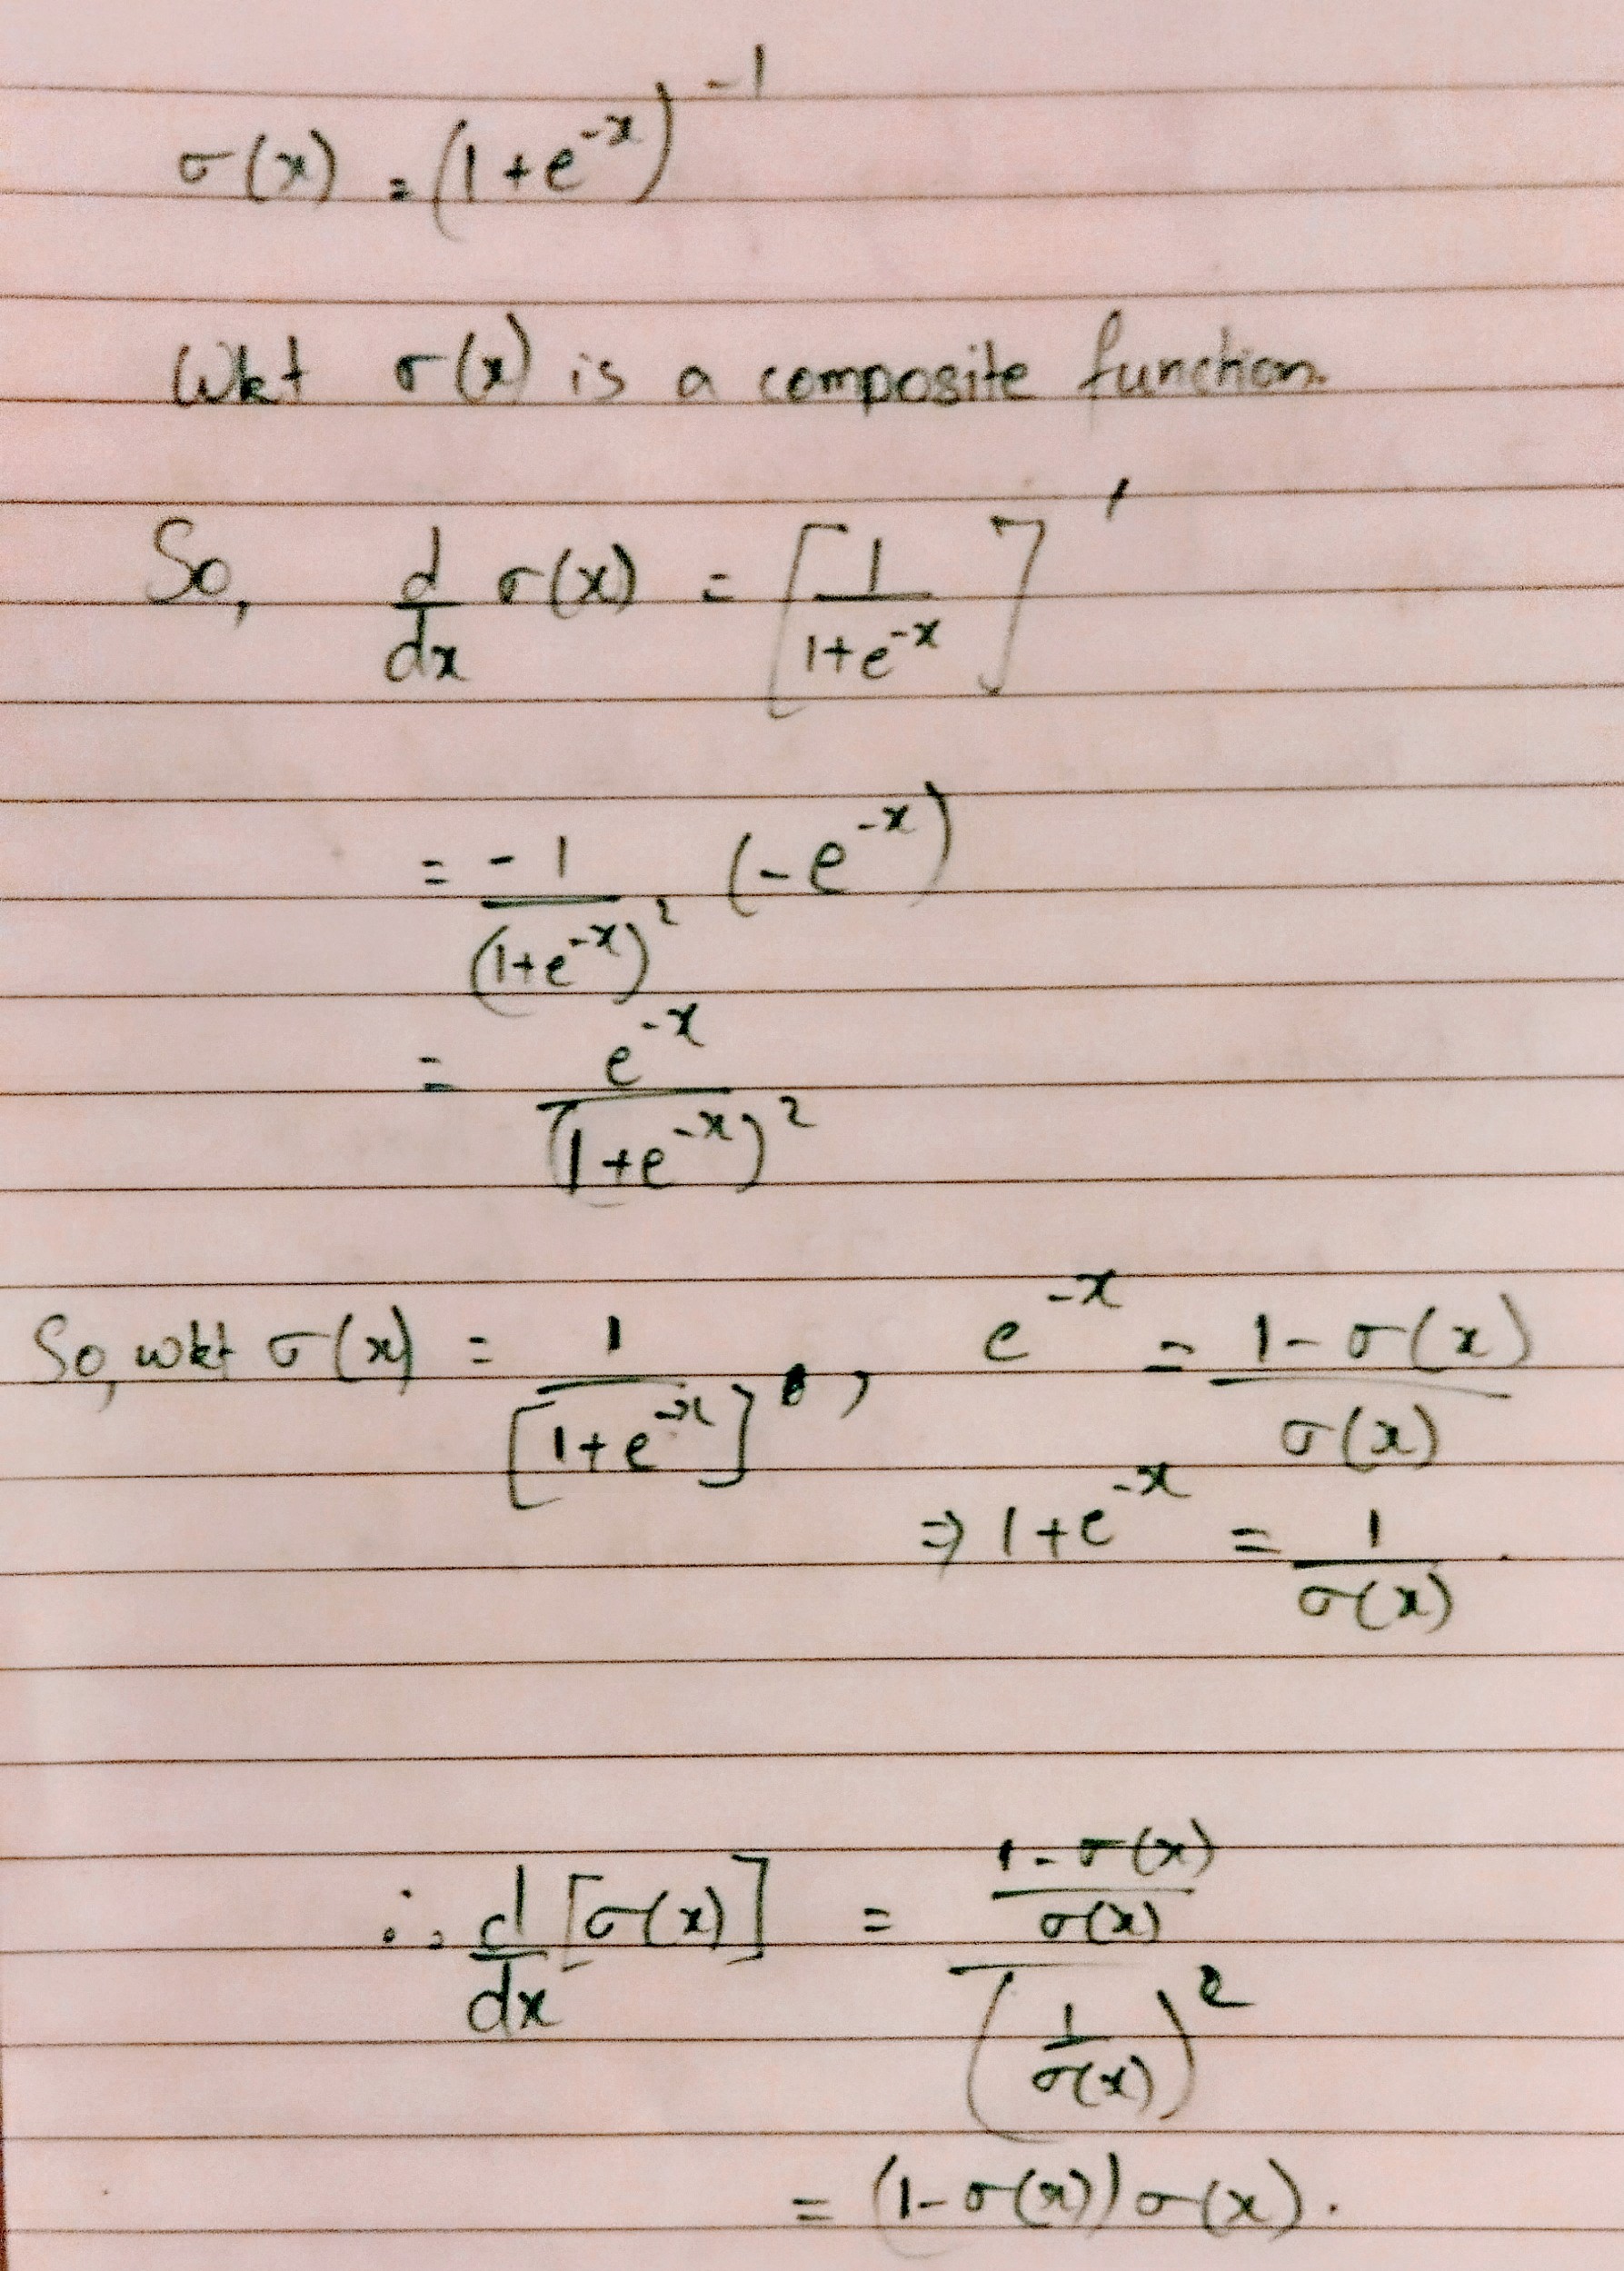 σ(x) = (1+e^{-x})^{-1}
Wkt σ(x) is a composite function.
So, d/dx σ(x) = [1/(1+e^{-x})]'
= -1/(1+e^{-x})^2 (-e^{-x})
= e^{-x}/(1+e^{-x})^2
So, wkt σ(x) = 1/[1+e^{-x}], e^{-x} = (1-σ(x))/σ(x)
⇒ 1+e^{-x} = 1/σ(x).
∴ d/dx [σ(x)] = ((1-σ(x))/σ(x))/(1/σ(x))^2
= (1-σ(x))σ(x).